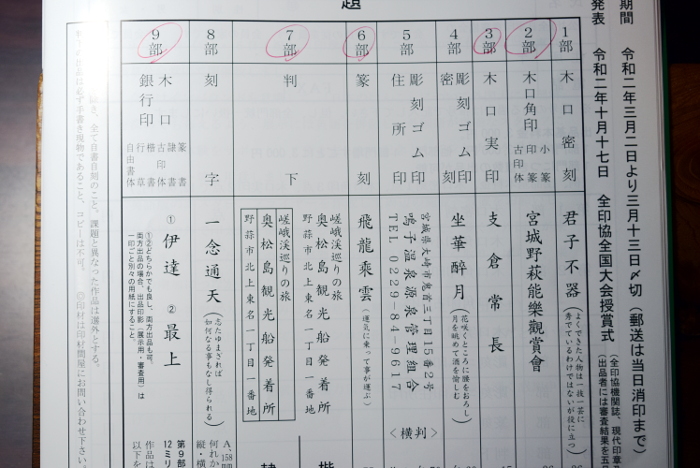 題
期間　令和二年三月二日より三月十三日〆切（郵送は当日消印まで）
発表　令和二年十月十七日　全印協全国大会授賞式
（全印協機関誌、現代印章
（出品者には審査結果を五月
1部
木口密刻
君子不器
（よくできた人物は一技一芸に
秀でているわけではないが役に立つ）
2部
木口角印
小篆
印篆
古印体
宮城野萩能樂觀賞會
3部
木口実印
支倉常長
4部
彫刻ゴム印
密刻
坐華醉月
（花咲くところに腰をおろし
月を眺めて酒を愉しむ）
5部
彫刻ゴム印
住所印
宮城県大崎市鬼首三丁目15番2号
鳴子温泉源泉管理組合
TEL 0229-84-9617
〈横判〉
6部
篆刻
飛龍乘雲
（運気に乗って事が運ぶ）
7部
判下
嵯峨渓巡りの旅
奥松島観光船発着所
野蒜市北上東名一丁目一番地
嵯峨渓巡りの旅
奥松島観光船発着所
野蒜市北上東名一丁目一番地
8部
刻字
一念通天
（念たゆまざれば
如何なる事もなし得られる）
9部
木口
銀行印
篆書
隷書
古印体
楷書
行草
自由書体
①伊達　②最上
①②どちらかでも良し、両方出品も可。
両方出品の場合、出品印影（展示用・審査用）は
一印ごと別々の用紙にすること
A
158mm
何れか
縦・横
第9部
12ミリ
作品は
以下を
全て自書自刻のこと。課題と異なった作品は選外とする。
作品は必ず手書き現物であること、コピーは不可。
◎印材は印材問屋にお問い合わせ下さい。